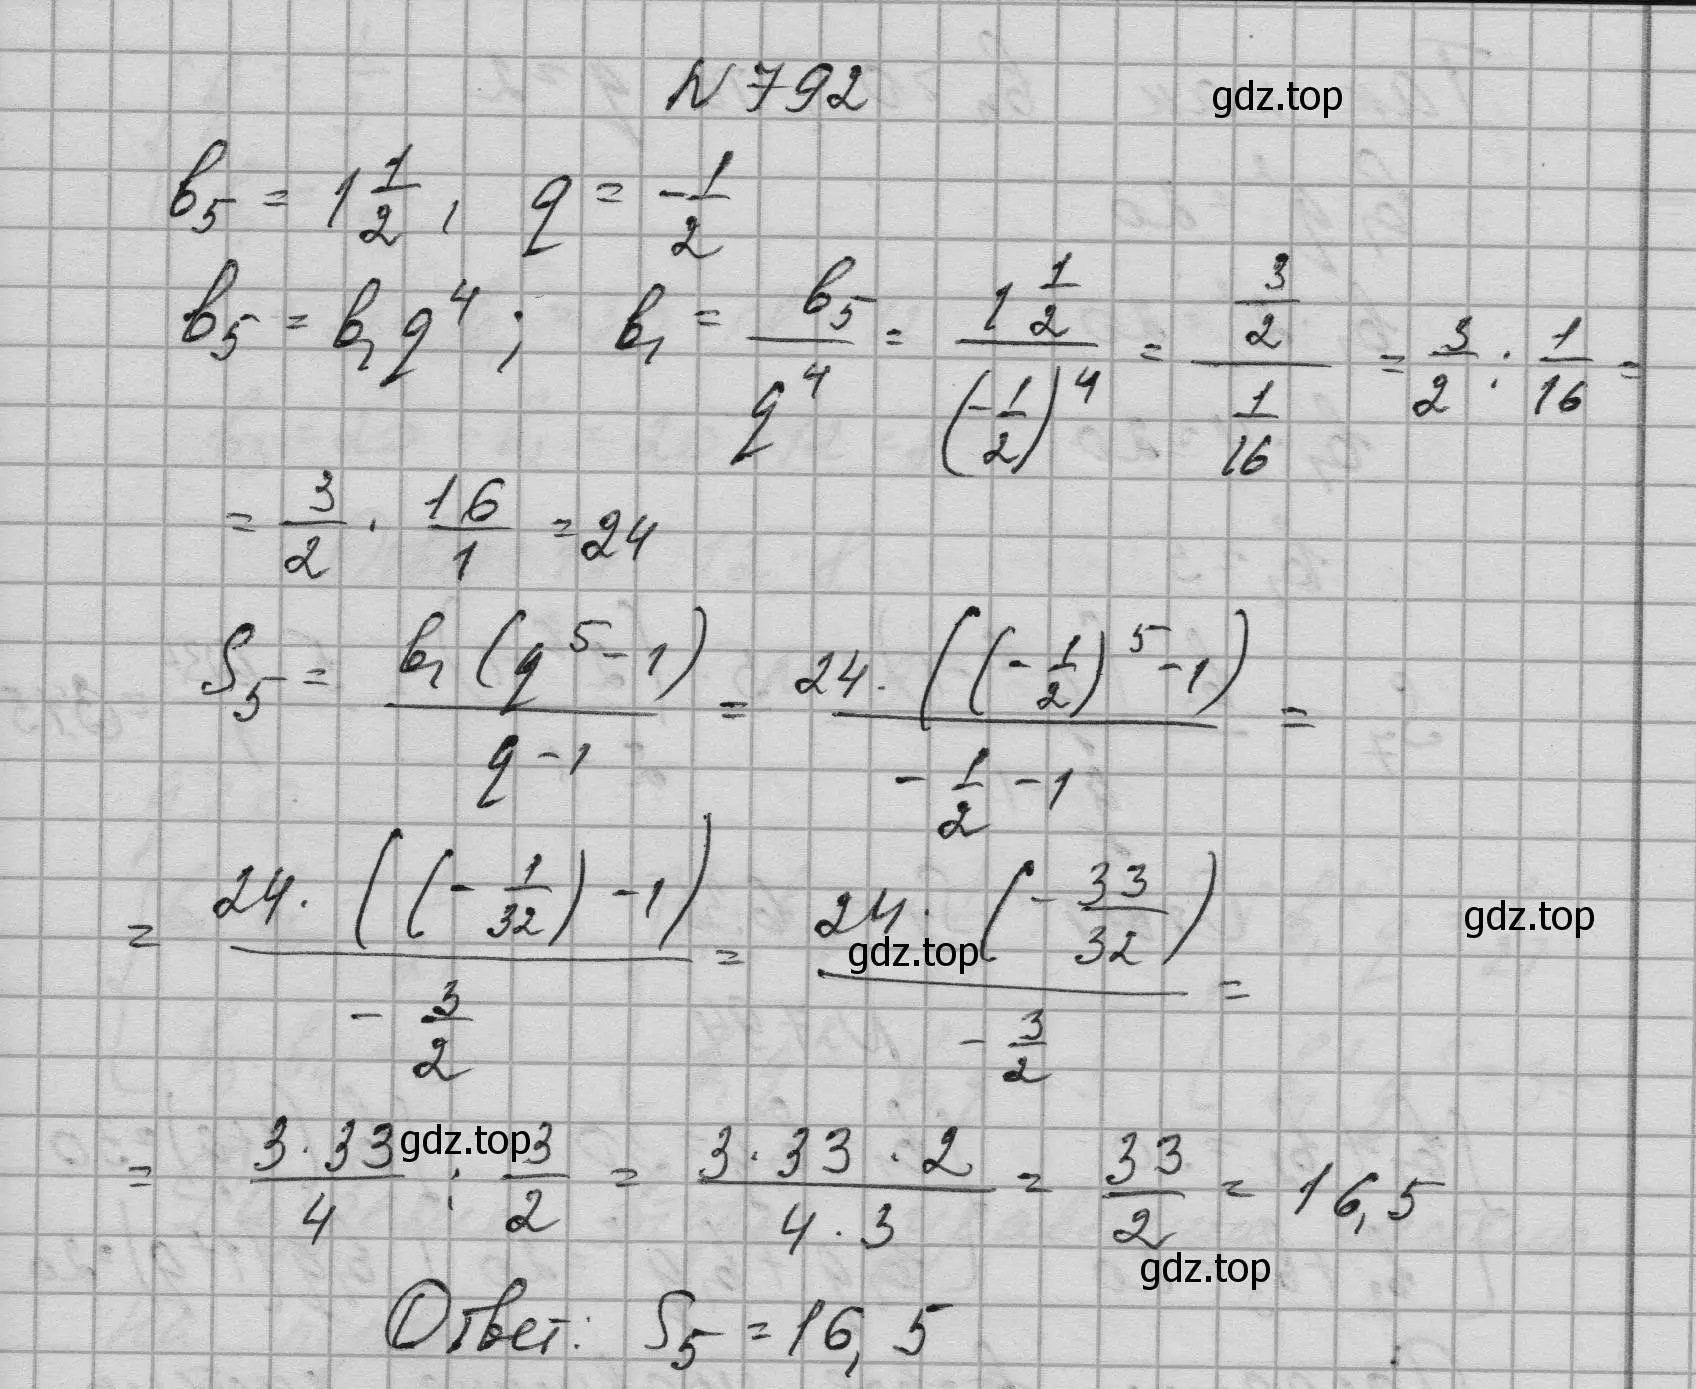 N 792
gdz.top
b₅ = 1 1/2, q = -1/2
b₅ = b₁q⁴; b₁ = b₅/q⁴ = (1 1/2)/(-1/2)⁴ = (3/2)/(1/16) = 3/2 : 1/16 =
= 3/2 · 16/1 = 24
S₅ = b₁(q⁵-1)/(q-1) = 24·((-1/2)⁵-1)/(-1/2-1) =
= 24·((-1/32)-1)/(-3/2) = 24·(-33/32)/(-3/2) =
gdz.top
gdz.top
= 3·33/4 : 3/2 = 3·33·2/(4·3) = 33/2 = 16,5
gdz.top
gdz.top
Ответ: S₅ = 16,5